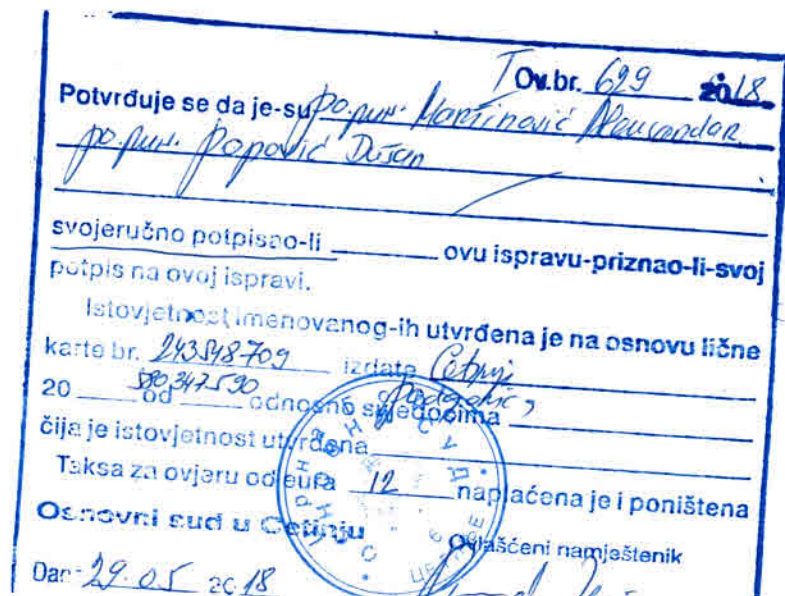 I Ov.br. 629 2018
Potvrđuje se da je-su po pun. Martinović Aleksandar
po pun. Popović Dušan
svojeručno potpisao-li ovu ispravu-priznao-li-svoj
potpis na ovoj ispravi.
Istovjetnost imenovanog-ih utvrđena je na osnovu lične
karte br. 243548709 izdate Cetinje
580347590 Podgorica
20 od odnosno svjedocima
čija je istovjetnost utvrđena
Taksa za ovjeru od eura 12 naplaćena je i poništena
Osnovni sud u Cetinju
Ovlašćeni namještenik
Dan 29.05 2018